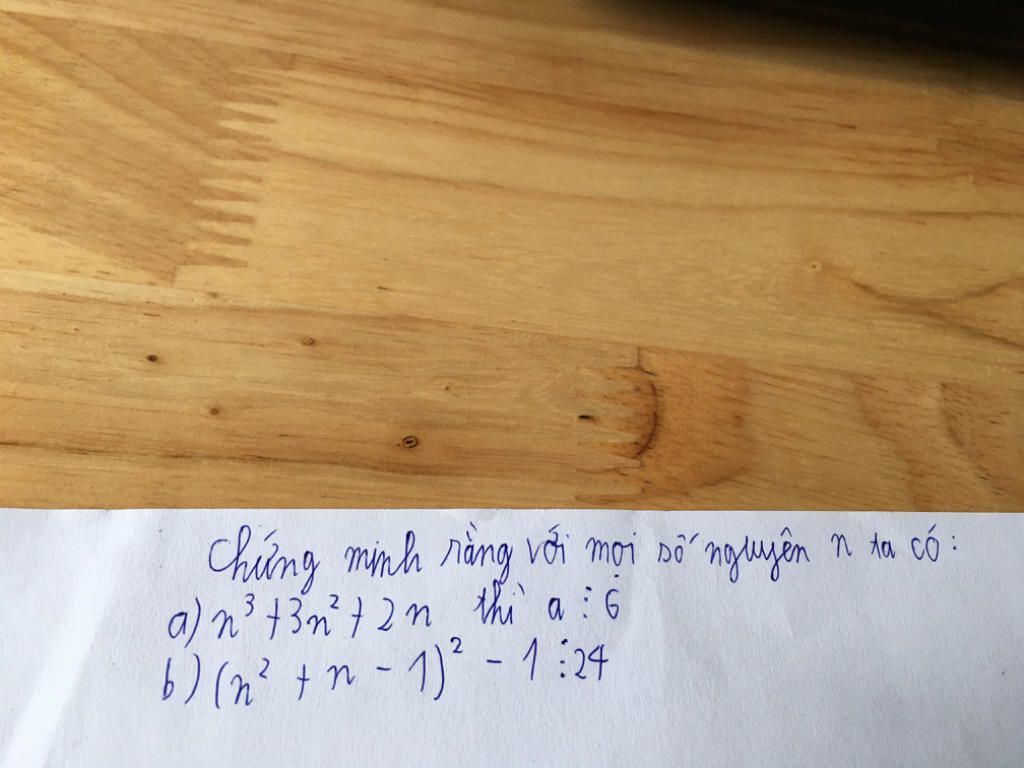 Chứng minh rằng với mọi số nguyên n ta có:
a) n³ + 3n² + 2n thì a ⋮ 6
b) (n² + n - 1)² - 1 ⋮ 24